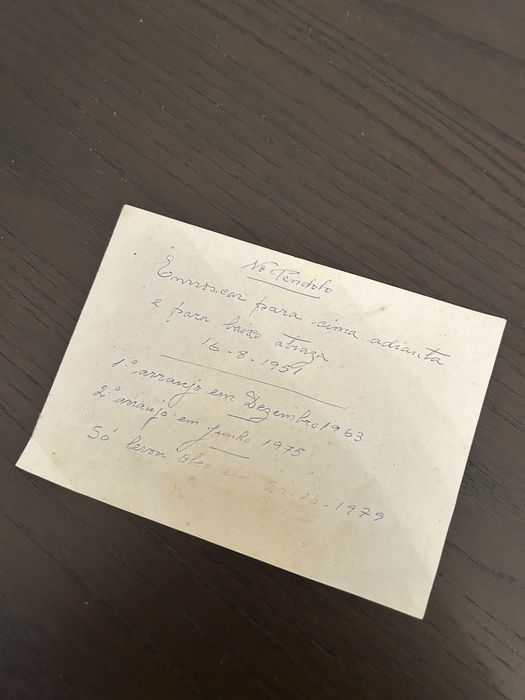 No Pendolo
Enroscar para cima adianta
e para baixo atraza
16-8-1951
1.º arranjo em Dezembro 1963
2.º arranjo em Junho 1975
Só levou oleo em 10-1979